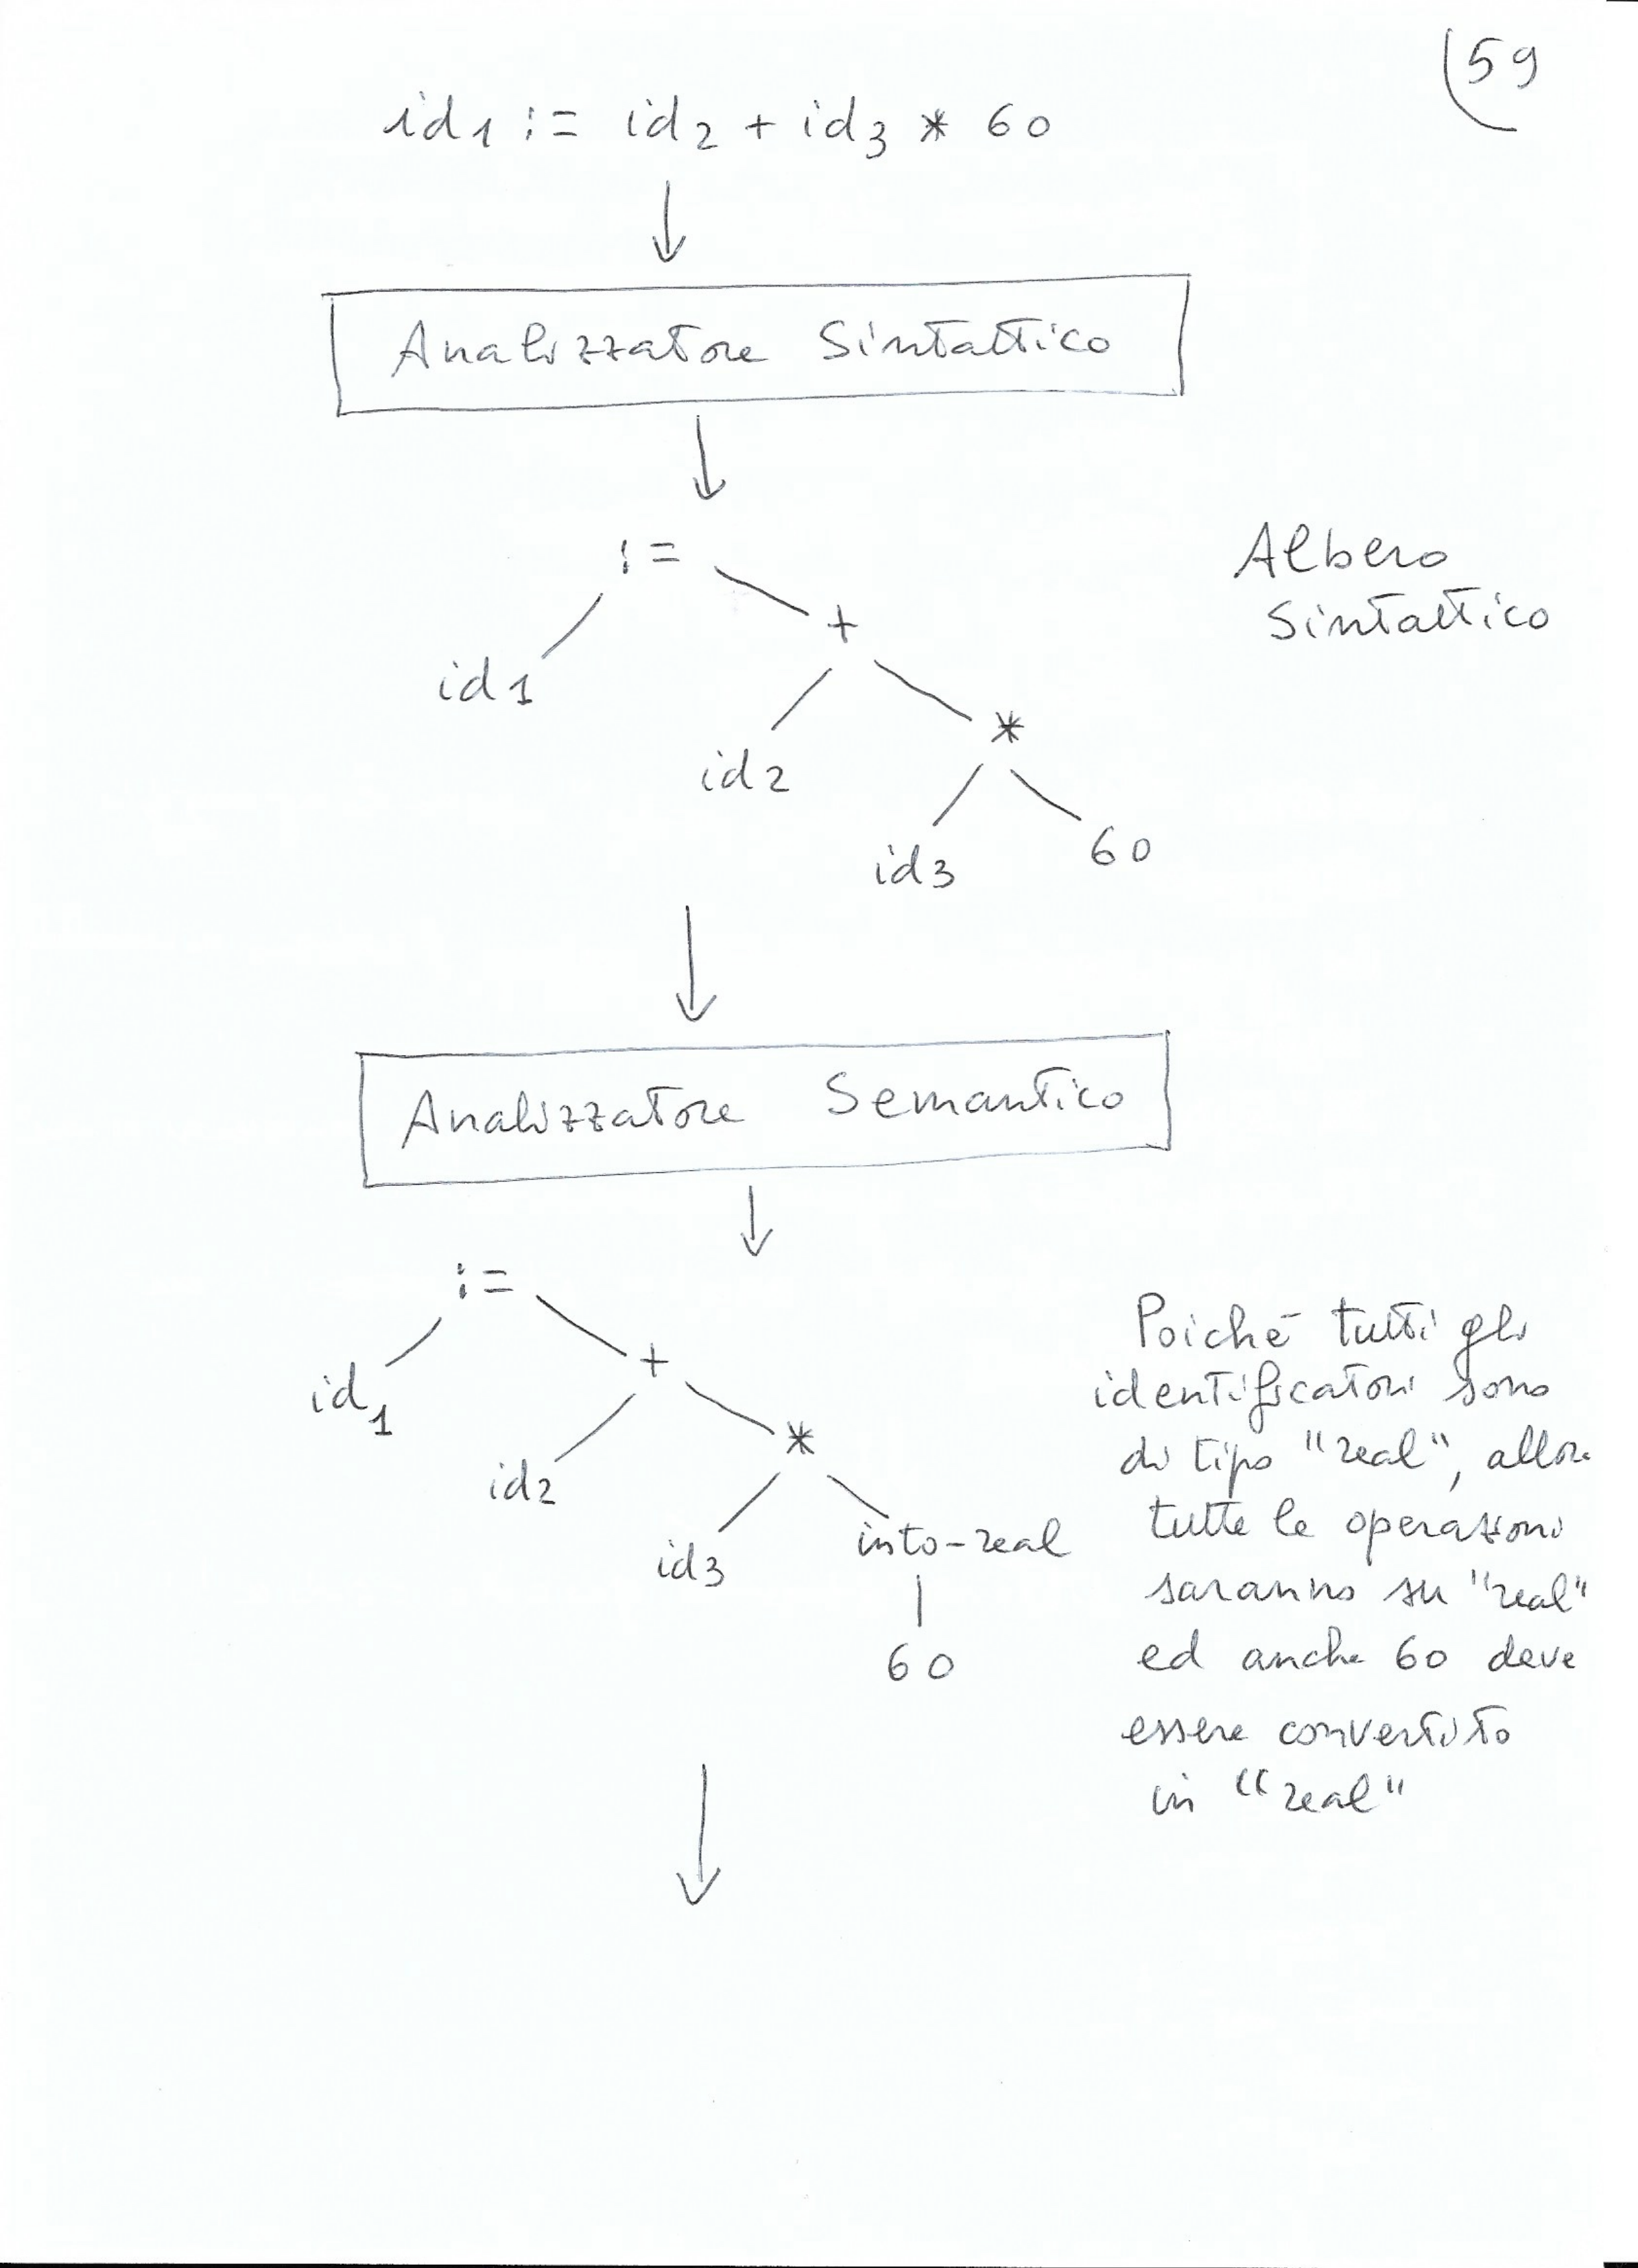 59
id1 := id2 + id3 * 60
Analizzatore Sintattico
:=
Albero
Sintattico
+
id1
*
id2
id3
60
Analizzatore Semantico
:=
+
id1
*
id2
id3
into-real
60
Poiché tutti gli
identificatori sono
di tipo "real", allora
tutte le operazioni
saranno su "real"
ed anche 60 deve
essere convertito
in "real"